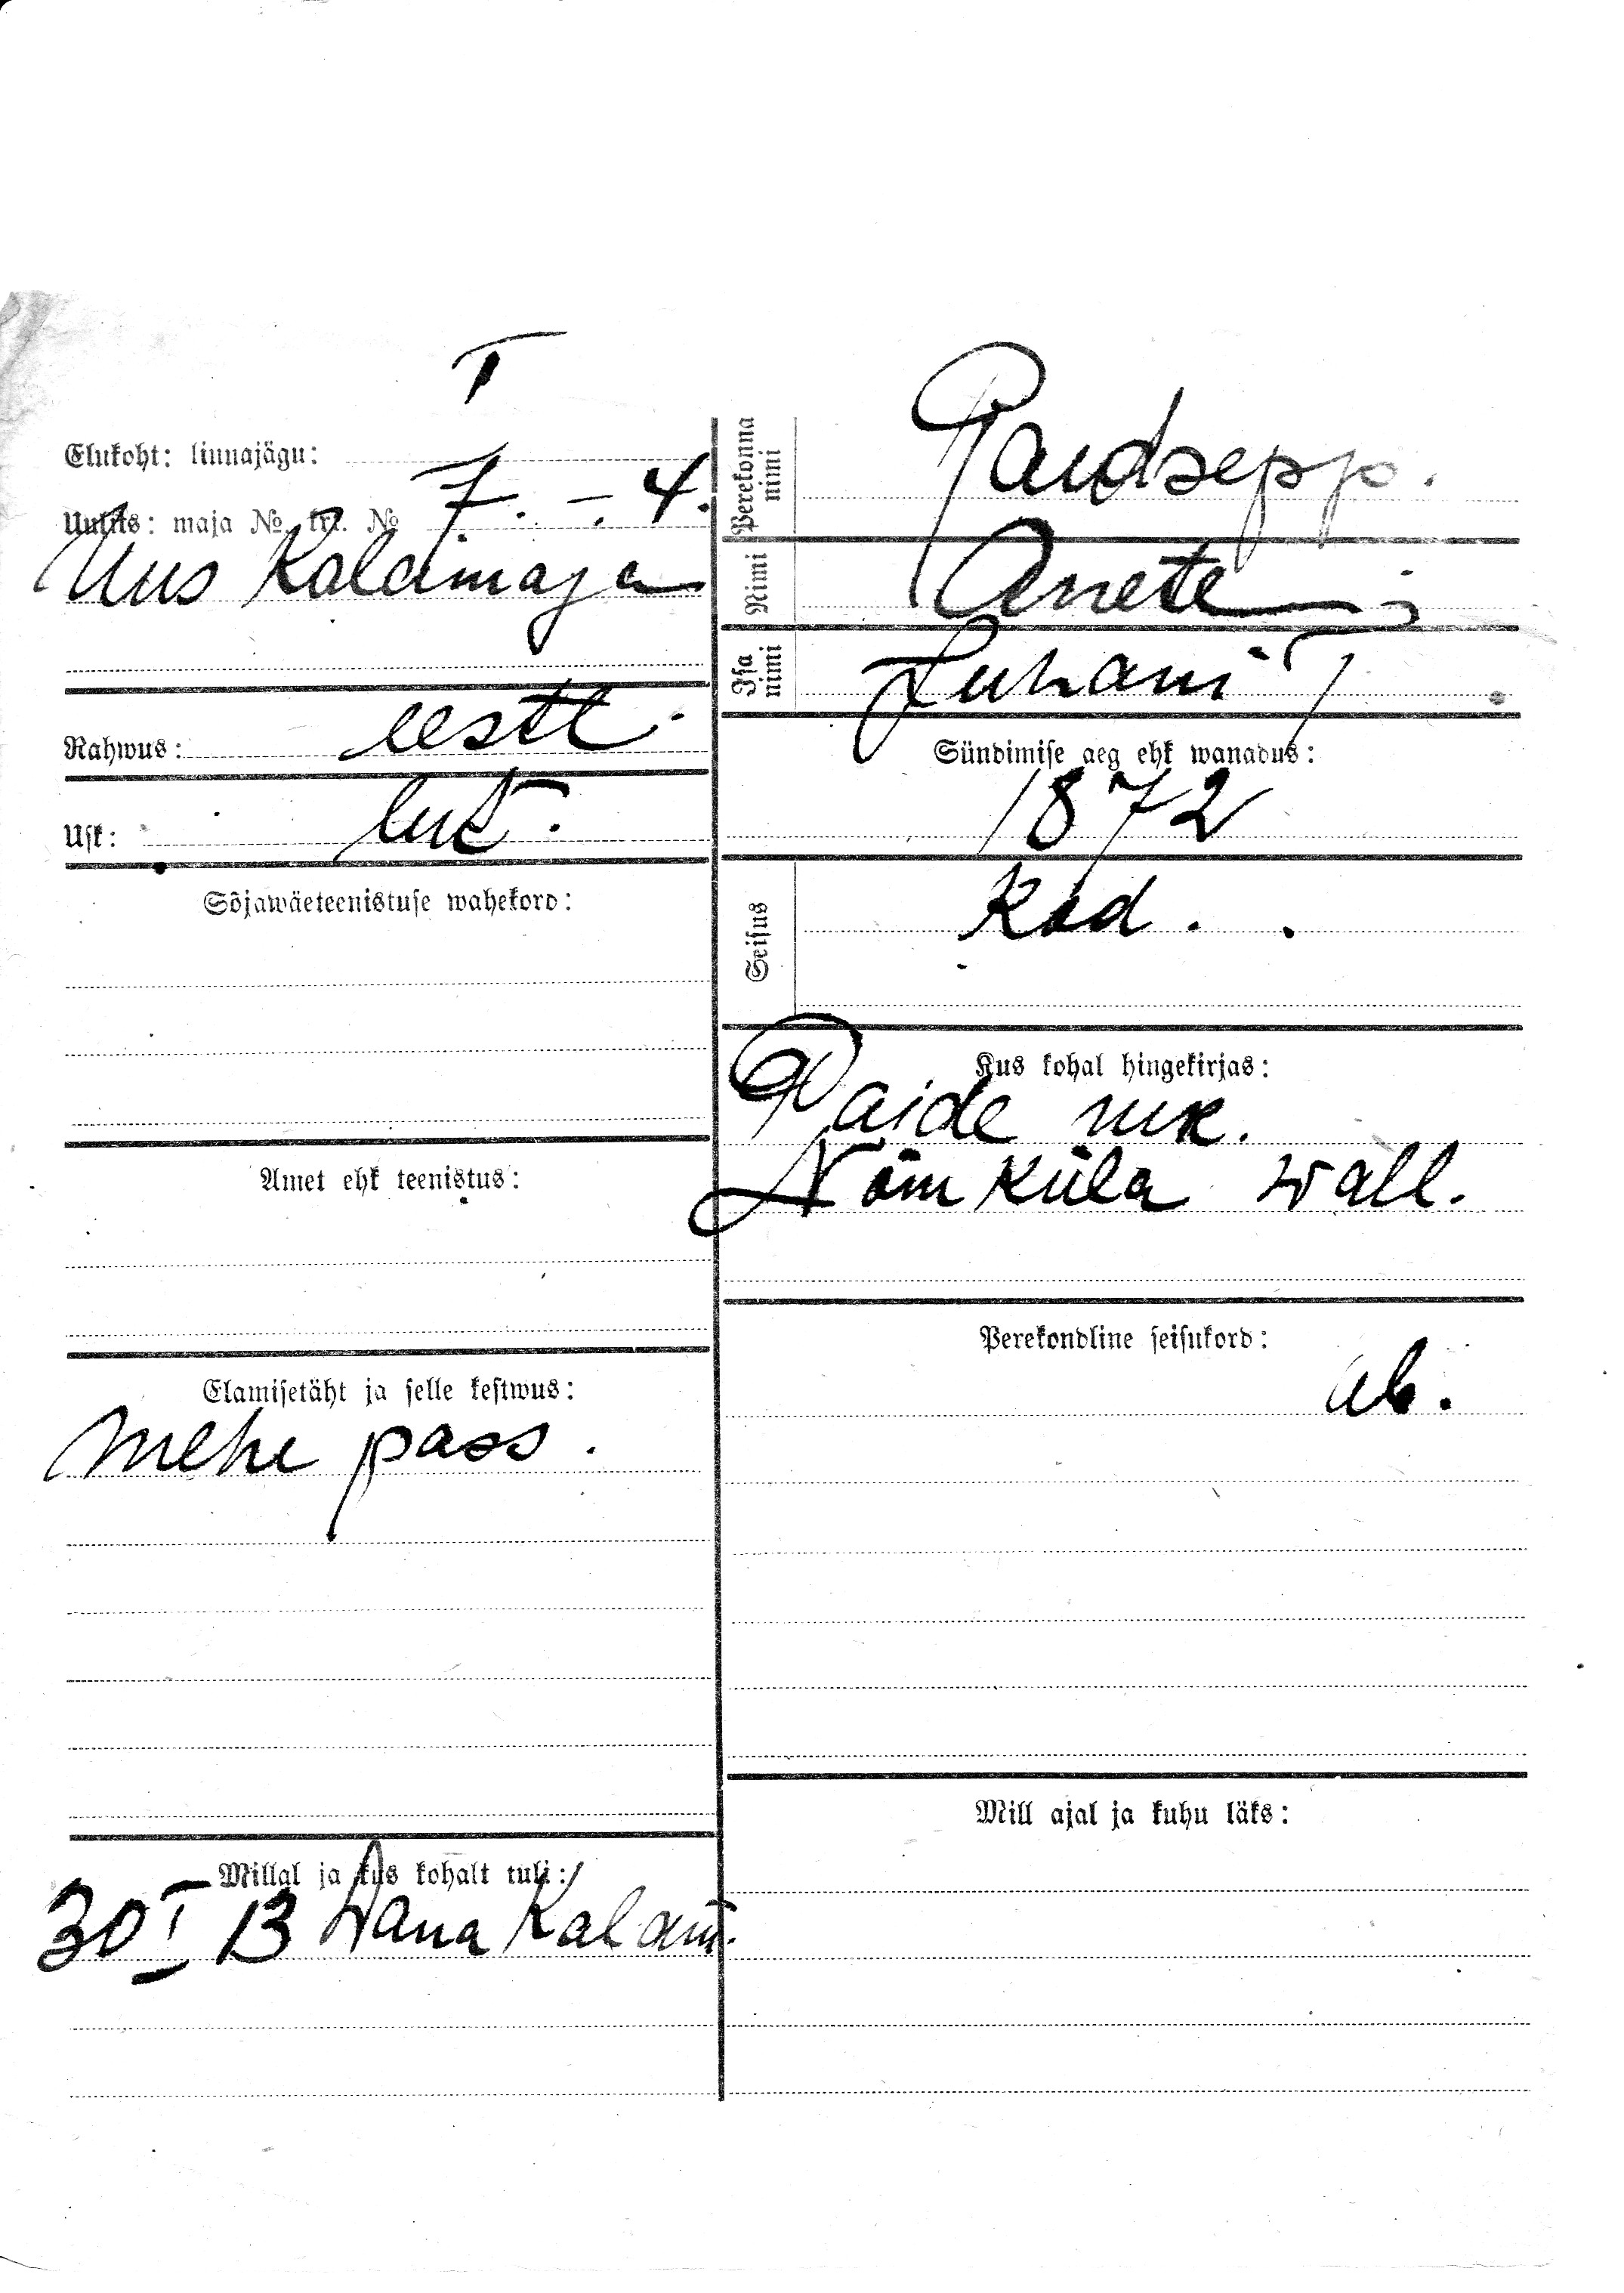 I
Elukoht: linnajägu:
Uulits: maja № krt. № 7. – 4.
Uus Kalamaja
Rahwus: eestl.
Usk: lut.
Sõjawäeteenistuse wahekord:
Amet ehk teenistus:
Elamisetäht ja selle kestwus:
mehe pass.
Millal ja kus kohalt tuli:
30 I 13 Wana Kalam.
Perekonna nimi
Raudsepp.
Nimi
Anete
Isa nimi
Juhani T
Sündimise aeg ehk wanadus:
1872
Seisus
Kod.
Kus kohal hingekirjas:
Paide mk.
Nõmküla wall.
Perekondline seisukord:
ab.
Mill ajal ja kuhu läks: